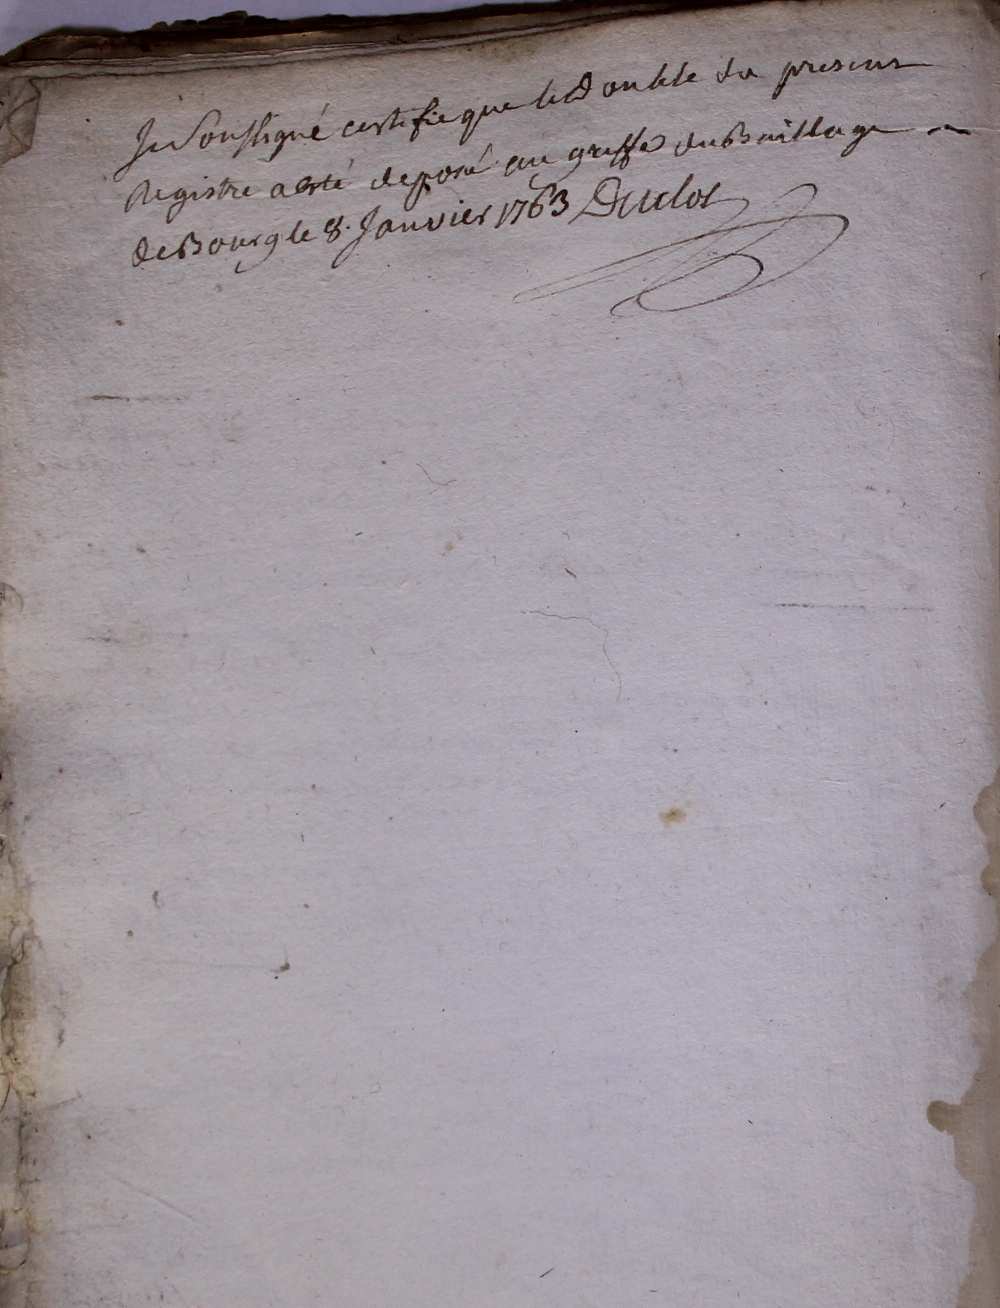 Je Soussigné certifie que le Double du present
Registre a esté deposé au greffe du Baillage
de Bourg le 8. Janvier 1763 Duclos